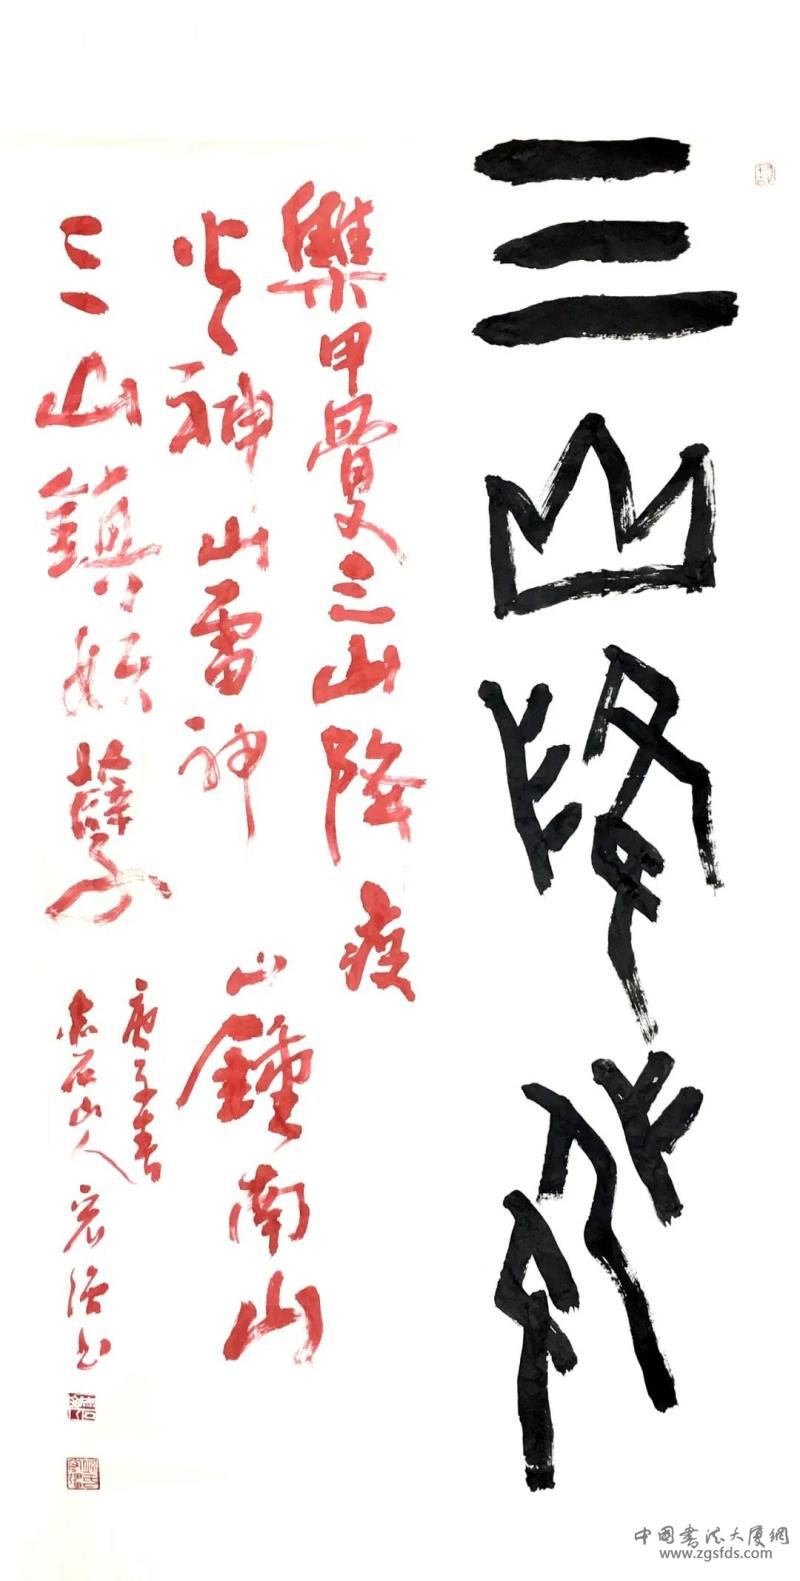 三山降疫
集甲骨文三山降疫
火神山雷神山鍾南山
三山鎮妖孽
庚子春
石山人宏书
中国书法大厦網
www.zgsfds.com